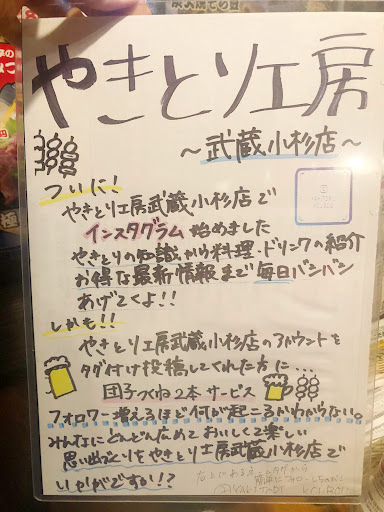 やきとり工房
～武蔵小杉店～
ついに!
やきとり工房武蔵小杉店で
インスタグラム始めました
やきとりの知識から料理・ドリンクの紹介
お得な最新情報まで毎日バシバシ
あげてくよ!!
しかも!!
やきとり工房武蔵小杉店のアカウントを
タグ付け投稿してくれた方に...
団子つくね2本サービス
フォロワー増えるほど何が起こるかわからない。
みんなにどんどん広めておいしく楽しい
思い出づくりをやきとり工房武蔵小杉店で
いかがですか!?